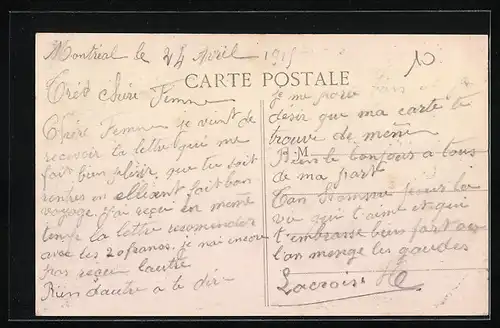 Montréal le 24 Avril 1915
10
CARTE POSTALE
Très chère Femme
Chère Femme je vient de
recevoir la lettre qui me
fait bien plésir que tu soit
rentres en ellisent fait bon
voyage. j'ai reçu en meme
temps la lettre recomender
avec les 20 francs. je n'ai encore
pas reçu lautre
Rien dautre a te dire
Je me porte bien et
désir que ma carte te
trouve de meme
B M
Bien le bonjour a tous
de ma part
Ton Homme pour la
vie qui t'aime et qui
t'embrasse bien fort
l'on menge les gaudes
Lacroix H